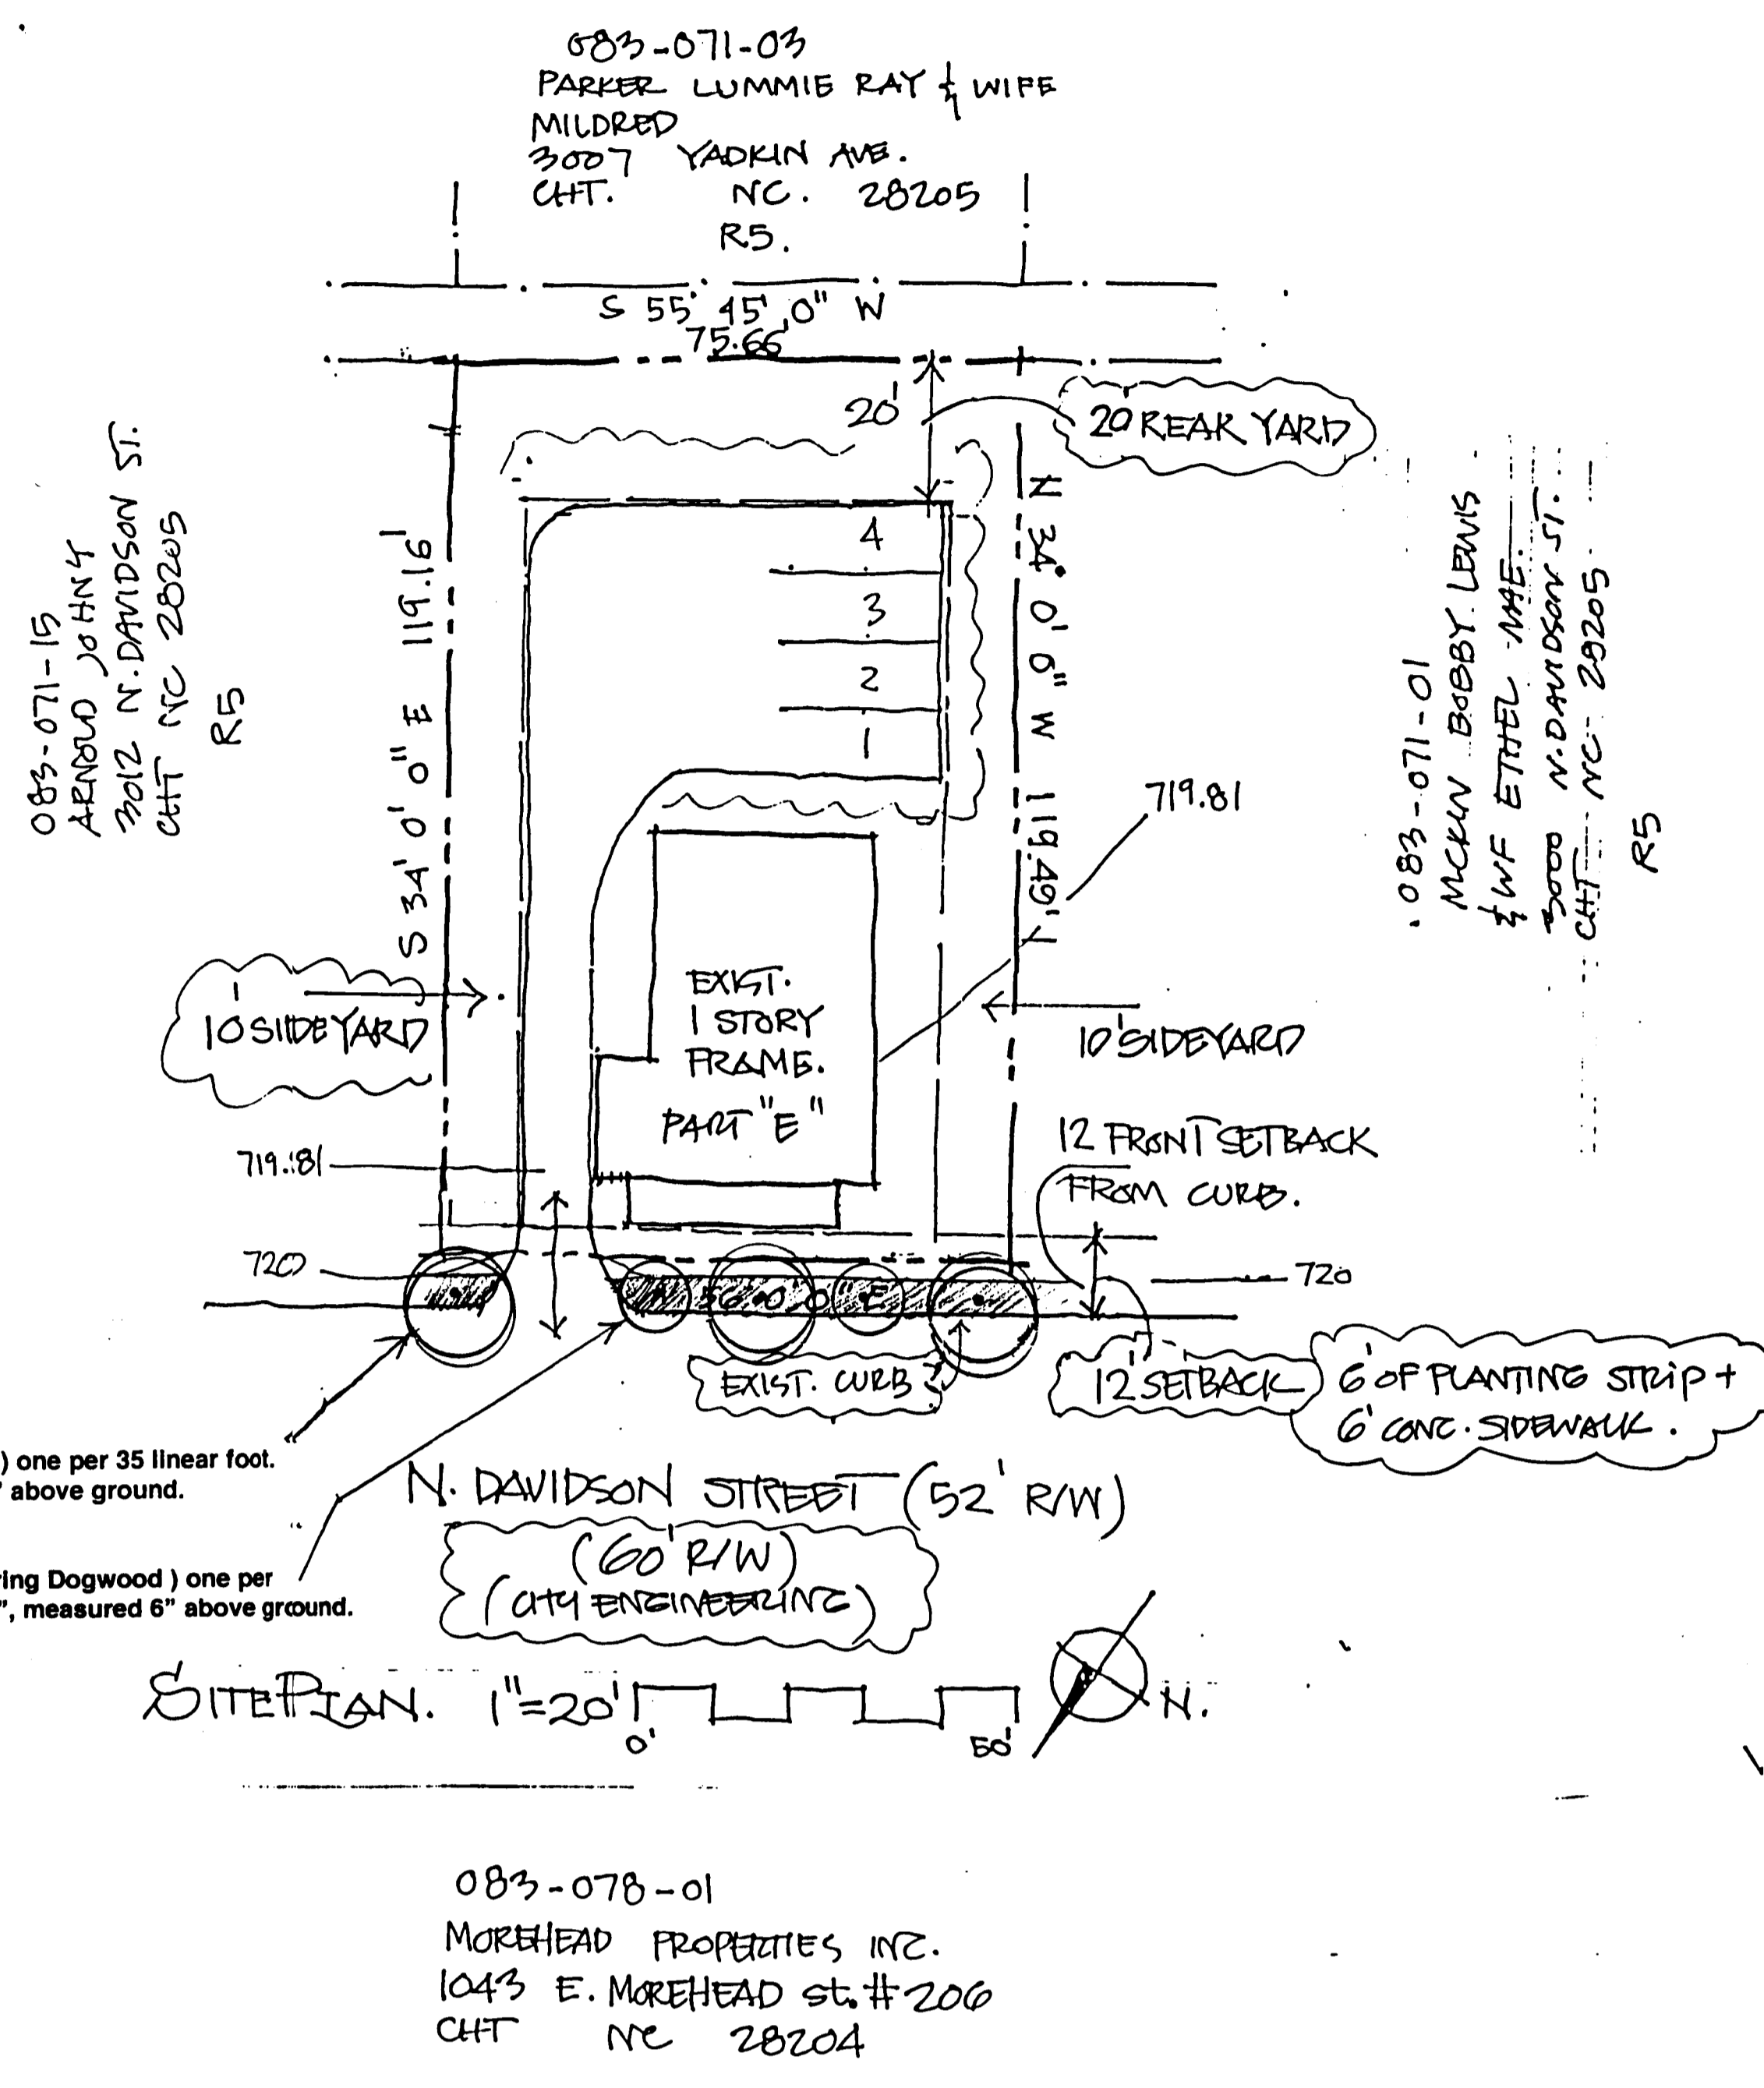 083-071-03
PARKER LUMMIE RAY & WIFE
MILDRED
3007 YADKIN AVE.
CHT. NC. 28205
R5.
S 55° 45' 0" W
75.66'
20'
20' REAR YARD
083-071-15
ARNOLD JOHNY
3012 N. DAVIDSON ST.
CHT NC 28205
R5
S 34' 0' 0" E 119.16'
4
3
2
1
N 34° 0' 0" W 119.49'
719.81
083-071-01
BOBBY LEWIS
& WF ETHEL MAE.
3000 N. DAVIDSON ST.
CHT NC 28205
R5
EXIST.
1 STORY
FRAME.
PART "E"
10' SIDEYARD
10' SIDEYARD
12 FRONT SETBACK
FROM CURB.
719.81
720
720
0' 0" E
EXIST. CURB
12' SETBACK
6' OF PLANTING STRIP +
6' CONC. SIDEWALK.
) one per 35 linear foot.
" above ground.
N. DAVIDSON STREET (52' R/W)
(60' R/W)
(CITY ENGINEERING)
ing Dogwood ) one per
", measured 6" above ground.
SITE PLAN. 1"=20'
0' 50'
N.
083-078-01
MOREHEAD PROPERTIES INC.
1043 E. MOREHEAD St. # 206
CHT NC 28204